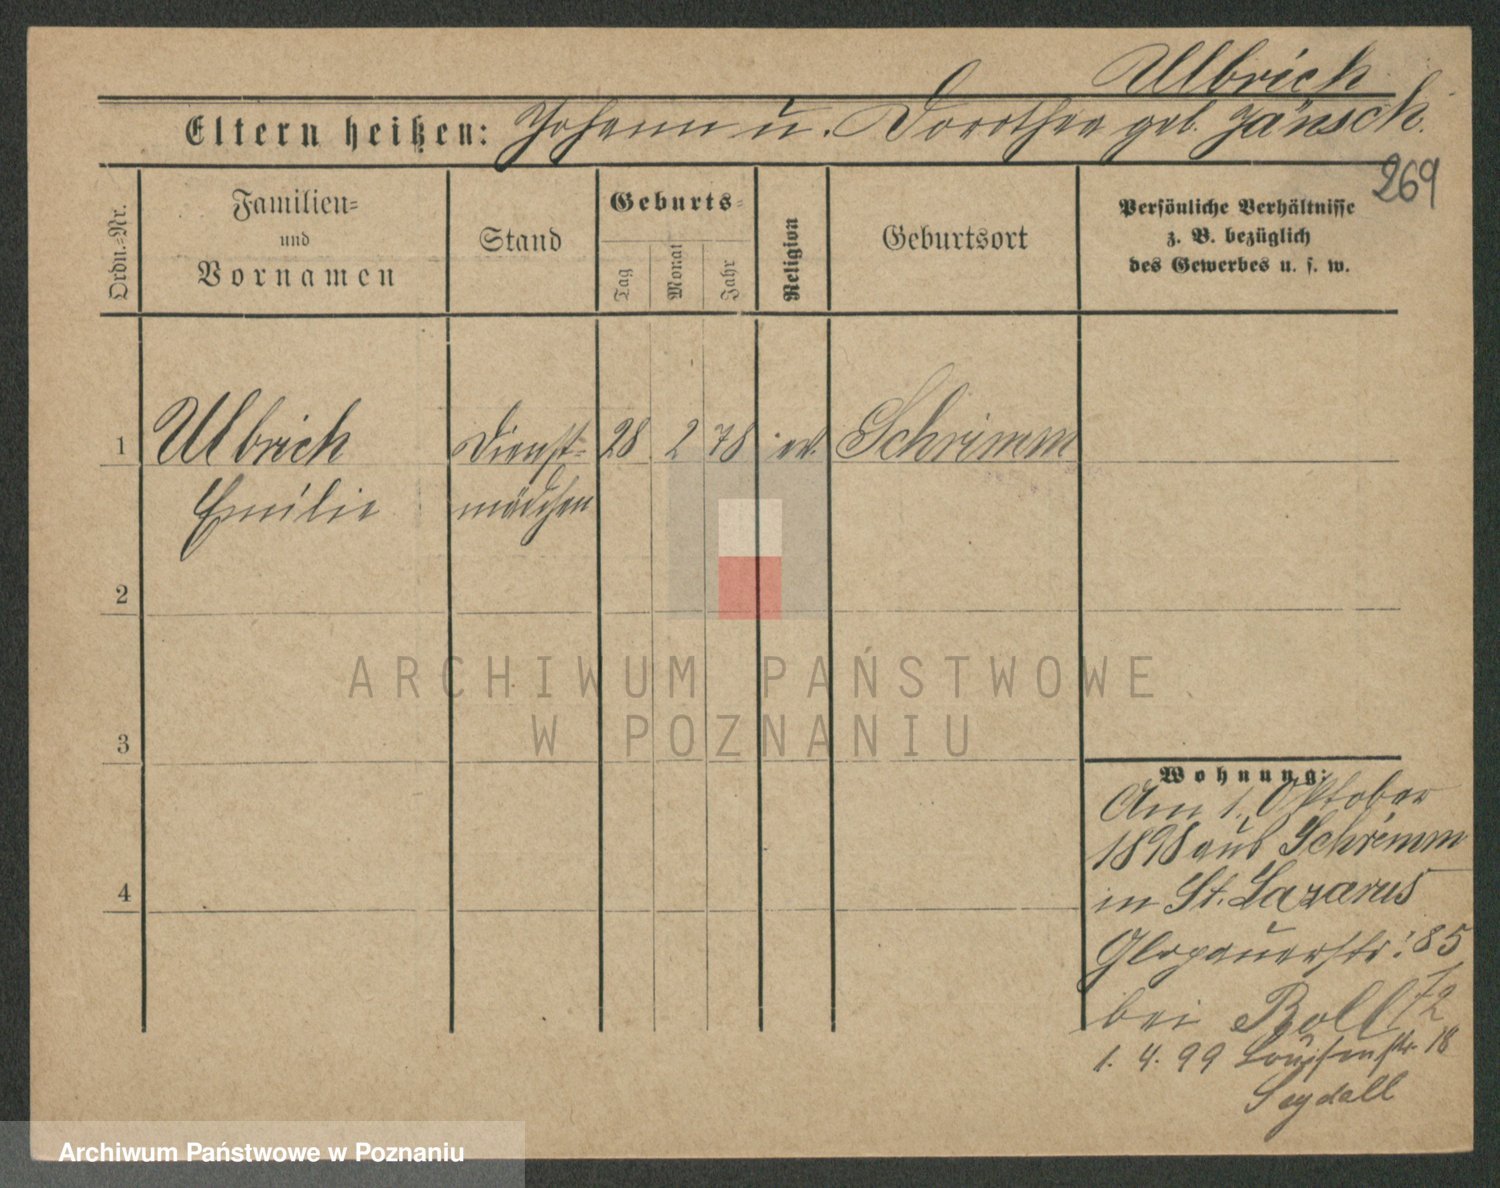 Ulbrich
Eltern heißen: Johann u. Dorothea geb. Jänsch.
269
Ordn.=Nr.
Familien=
und
Vornamen
Stand
Geburts=
Tag
Monat
Jahr
Religion
Geburtsort
Persönliche Verhältnisse
z. B. bezüglich
des Gewerbes u. s. w.
1 Ulbrich Dienst= 28 2 78 ev. Schrimm
Emilie mädchen
2
3
4
Wohnung:
Am 1. Oktober
1898 aus Schrimm
in St. Lazarus
Glogauerstr: 85
bei Boll
1. 4. 99 Louisenstr. 18
Seydall
ARCHIWUM PAŃSTWOWE
W POZNANIU
Archiwum Państwowe w Poznaniu